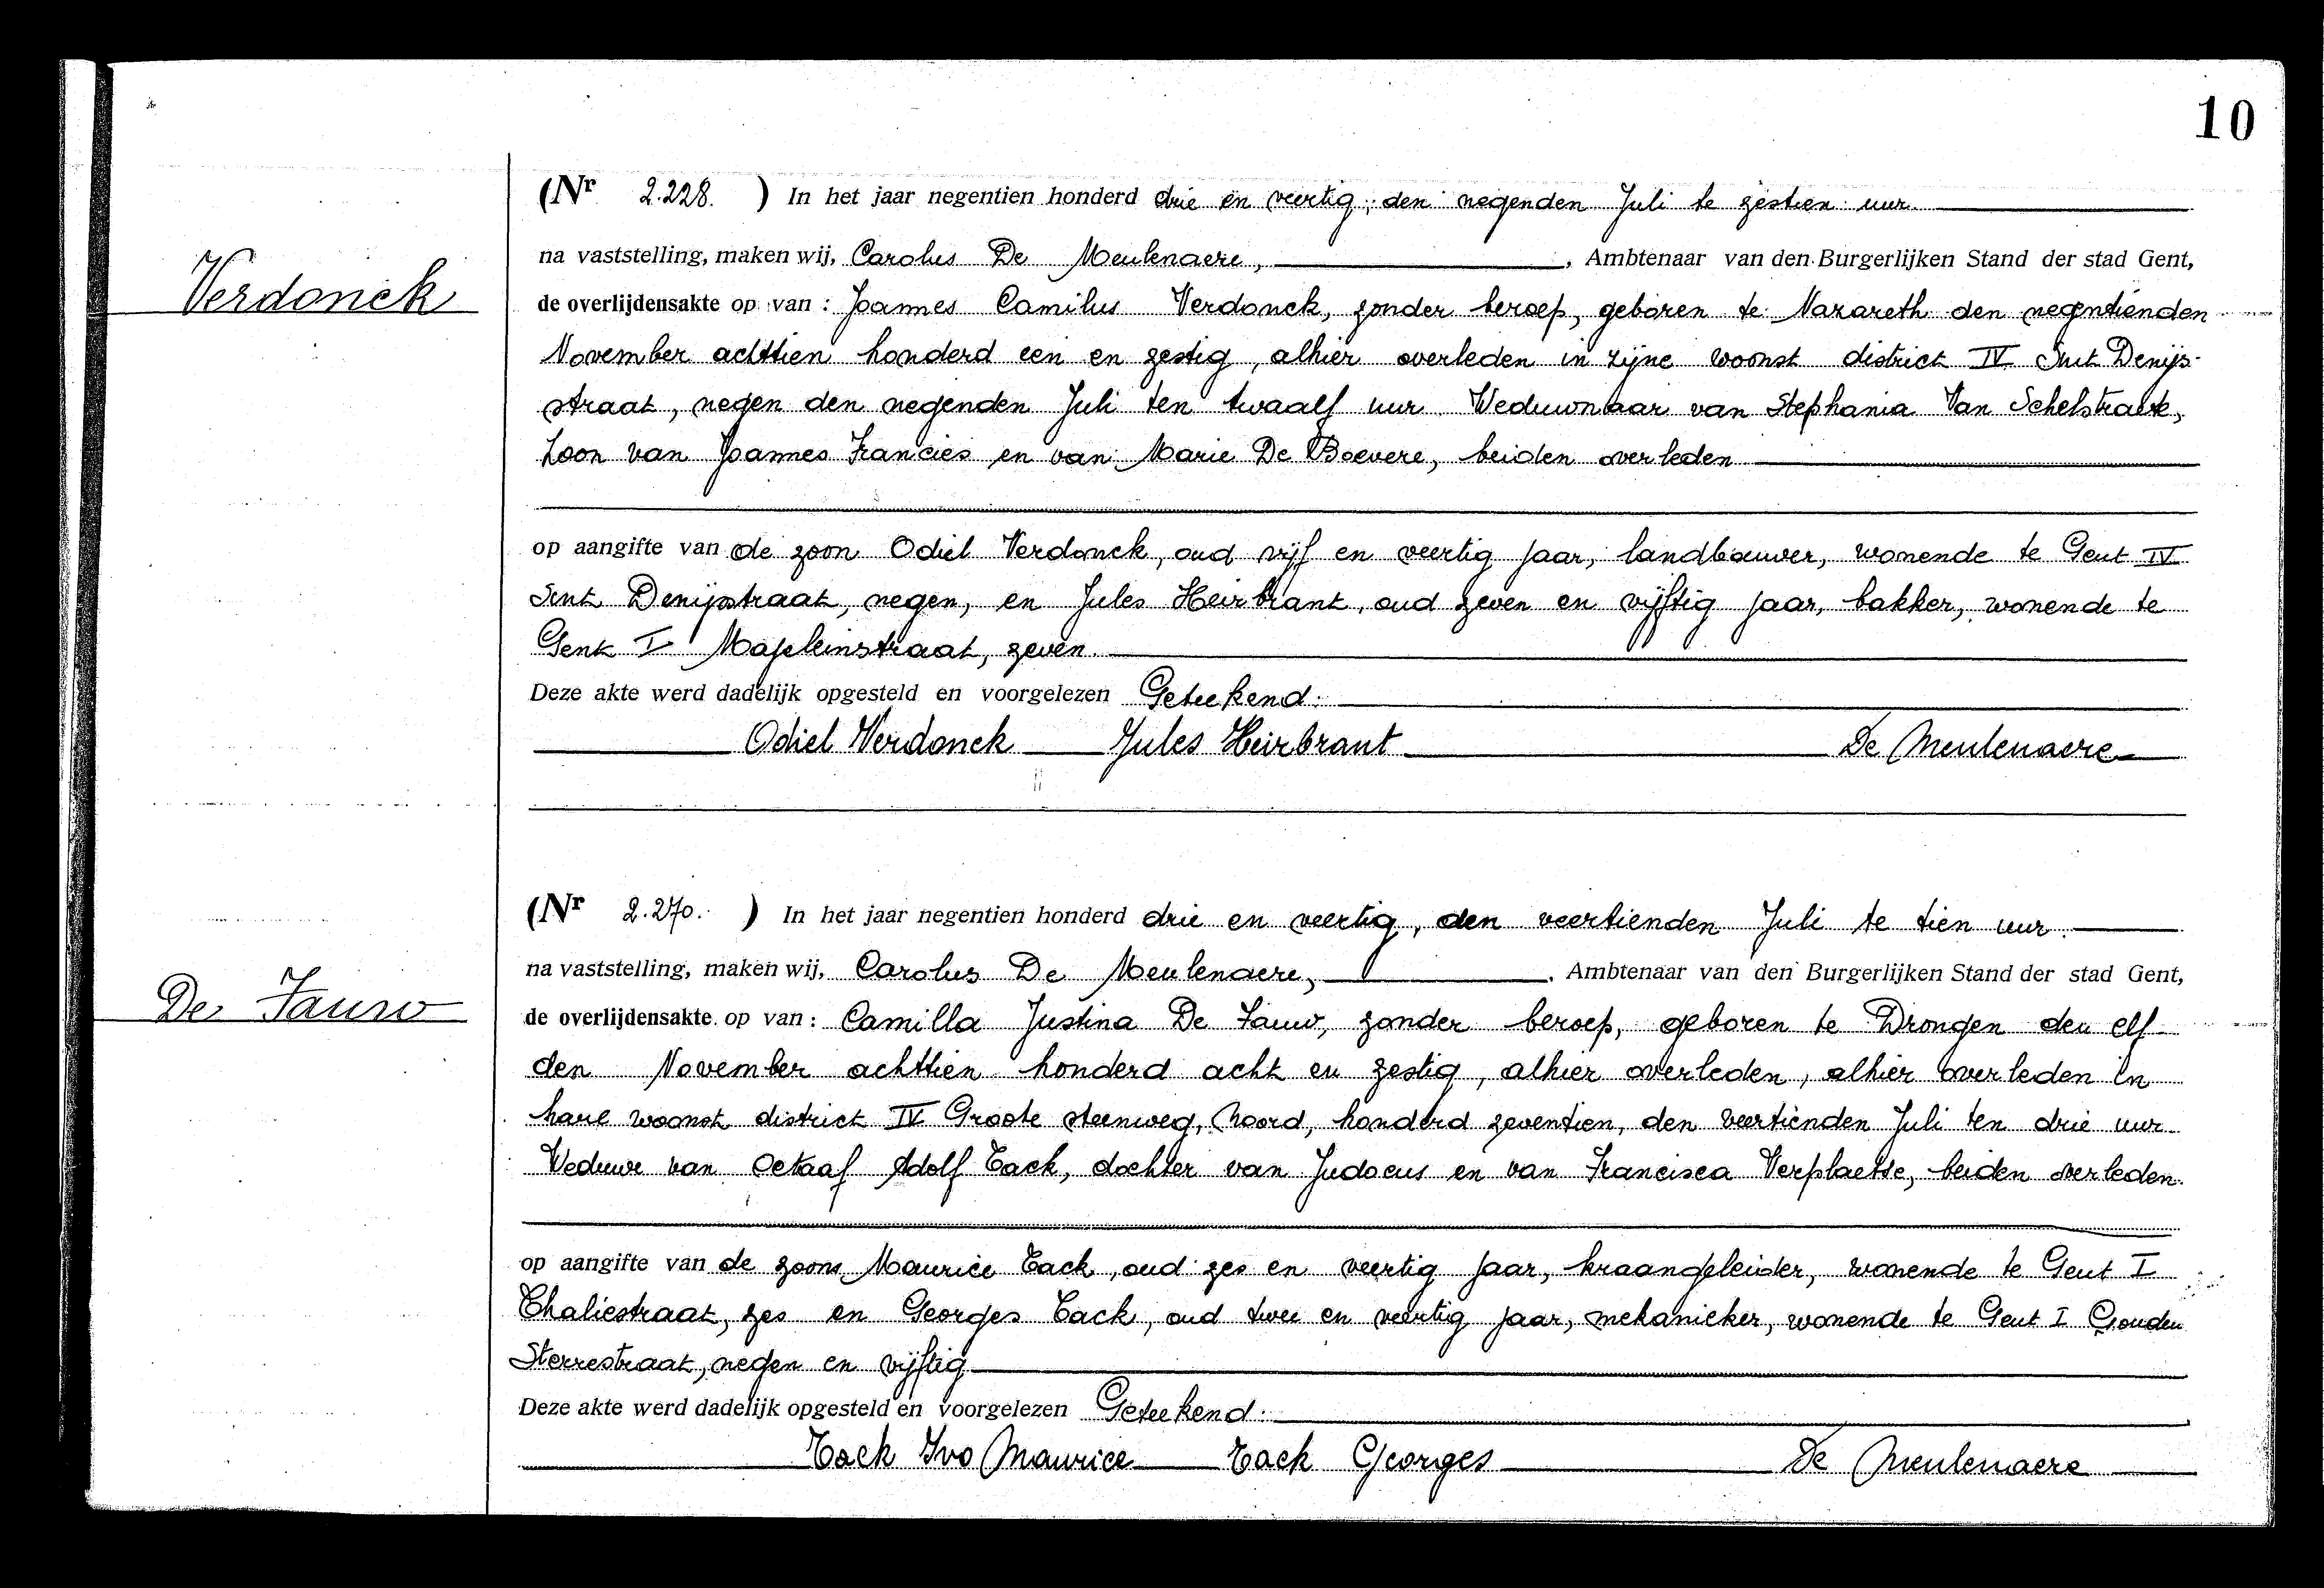 10
(Nr 2.228. ) In het jaar negentien honderd drie en veertig, den negenden Juli te zestien uur.
Verdonck
na vaststelling, maken wij, Carolus De Meulenaere, , Ambtenaar van den Burgerlijken Stand der stad Gent,
de overlijdensakte op van : Joannes Camilus Verdonck, zonder beroep, geboren te Nazareth den negentienden
November achttien honderd een en zestig, alhier overleden in zijne woonst district IV Sint Denijs-
straat, negen den negenden Juli ten twaalf uur Weduwnaar van Stephania Van Schelstraete,
Zoon van Joannes Francies en van Marie De Boevere, beiden overleden
op aangifte van de zoon Odiel Verdonck, oud vijf en veertig jaar, landbouwer, wonende te Gent IV
Sint Denijsstraat, negen, en Jules Heirbrant, oud zeven en vijftig jaar, bakker, wonende te
Gent I Majoleinstraat, zeven.
Deze akte werd dadelijk opgesteld en voorgelezen Geteekend:
Odiel Verdonck Jules Heirbrant De Meulenaere
(Nr 2.270. ) In het jaar negentien honderd drie en veertig, den veertienden Juli te tien uur.
De Fauw
na vaststelling, maken wij, Carolus De Meulenaere, , Ambtenaar van den Burgerlijken Stand der stad Gent,
de overlijdensakte op van : Camilla Justina De Fauw, zonder beroep, geboren te Drongen den elf
den November achttien honderd acht en zestig, alhier overleden, alhier overleden in
hare woonst district IV Groote steenweg, Noord, honderd zeventien, den veertienden Juli ten drie uur.
Weduwe van Octaaf Adolf Tack, dochter van Judocus en van Francisca Verplaetse, beiden overleden.
op aangifte van de zoons Maurice Tack, oud zes en veertig jaar, kraangeleider, wonende te Gent I
Thaliestraat, zes en Georges Tack, oud twee en veertig jaar, mekanieker, wonende te Gent I Gouden
Sterrestraat, negen en vijftig
Deze akte werd dadelijk opgesteld en voorgelezen Geteekend:
Tack Ivo Maurice Tack Georges De Meulenaere